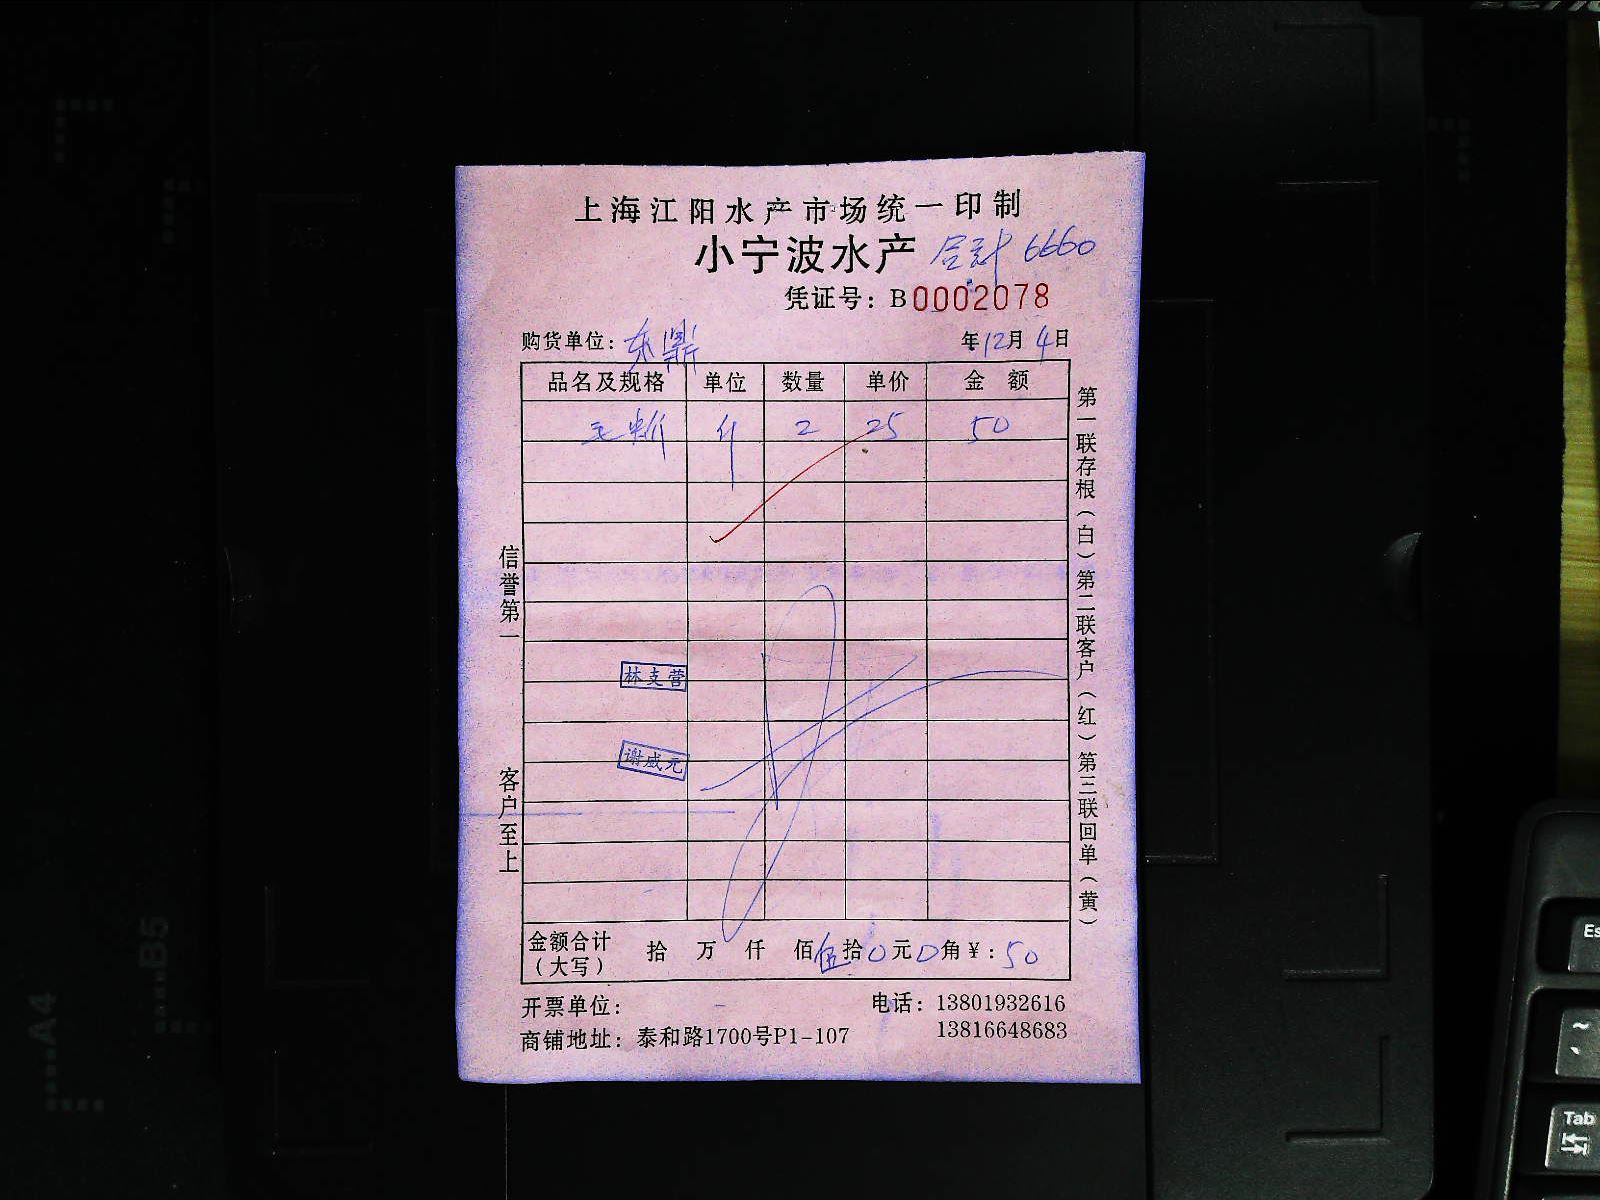 上海江阳水产市场统一印制
小宁波水产 合计 6660
凭证号：B0002078
购货单位：东鼎 年12月4日
品名及规格 单位 数量 单价 金额
毛蚶 斤 2 25 50
林支营
谢成元
信誉第一 客户至上
第一联存根（白）第二联客户（红）第三联回单（黄）
金额合计（大写） 拾 万 仟 佰伍拾0元0角¥：50
开票单位： 电话：13801932616
商铺地址：泰和路1700号P1-107 13816648683
A4
B5
A5
Es
~
Tab